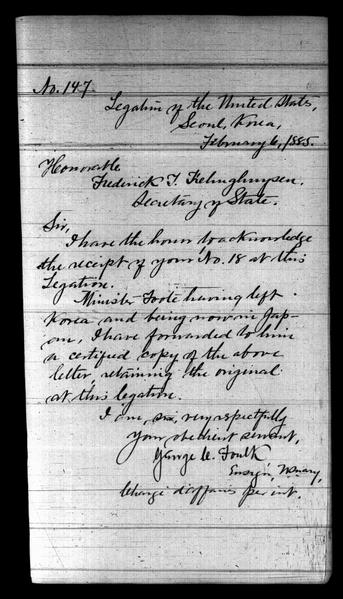 No. 147.
Legation of the United States,
Seoul, Korea,
February 6, 1885.
Honorable
Frederick T. Frelinghuysen,
Secretary of State.
Sir,
I have the honor to acknowledge
the receipt of your No. 18 at this
Legation.
Minister Foote having left
Korea and being now in Jap-
an, I have forwarded to him
a certified copy of the above
letter, retaining the original
at this legation.
I am, sir, very respectfully
Your obedient servant,
George C. Foulk
Ensign, U.S. Navy,
Chargé d'affaires per int.